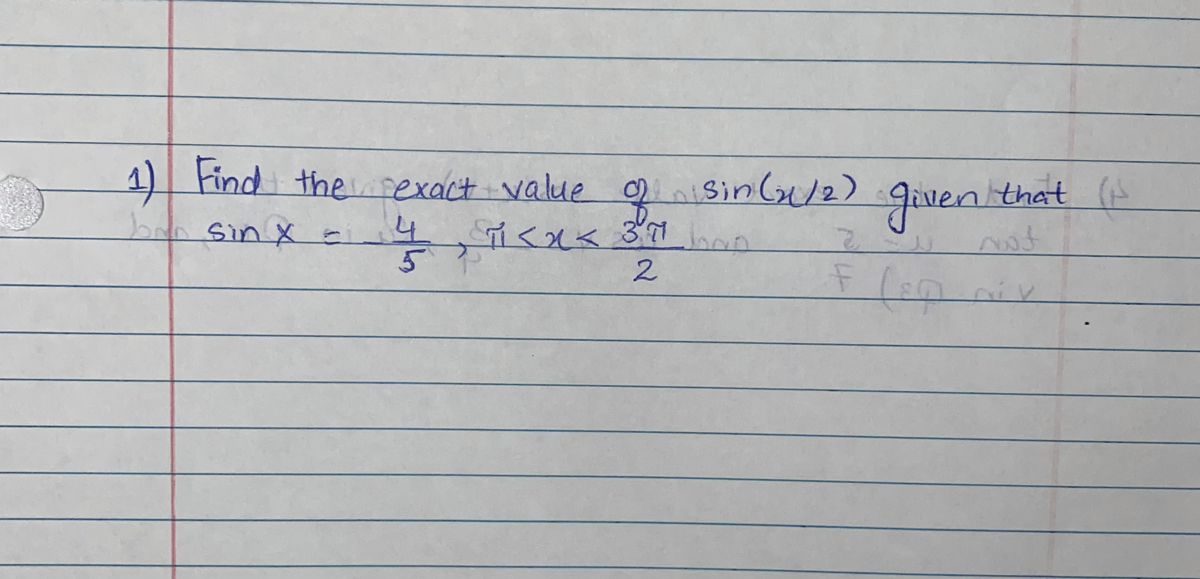 1) Find the exact value of sin(x/2) given that
sin x = -4/5 , π < x < 3π/2